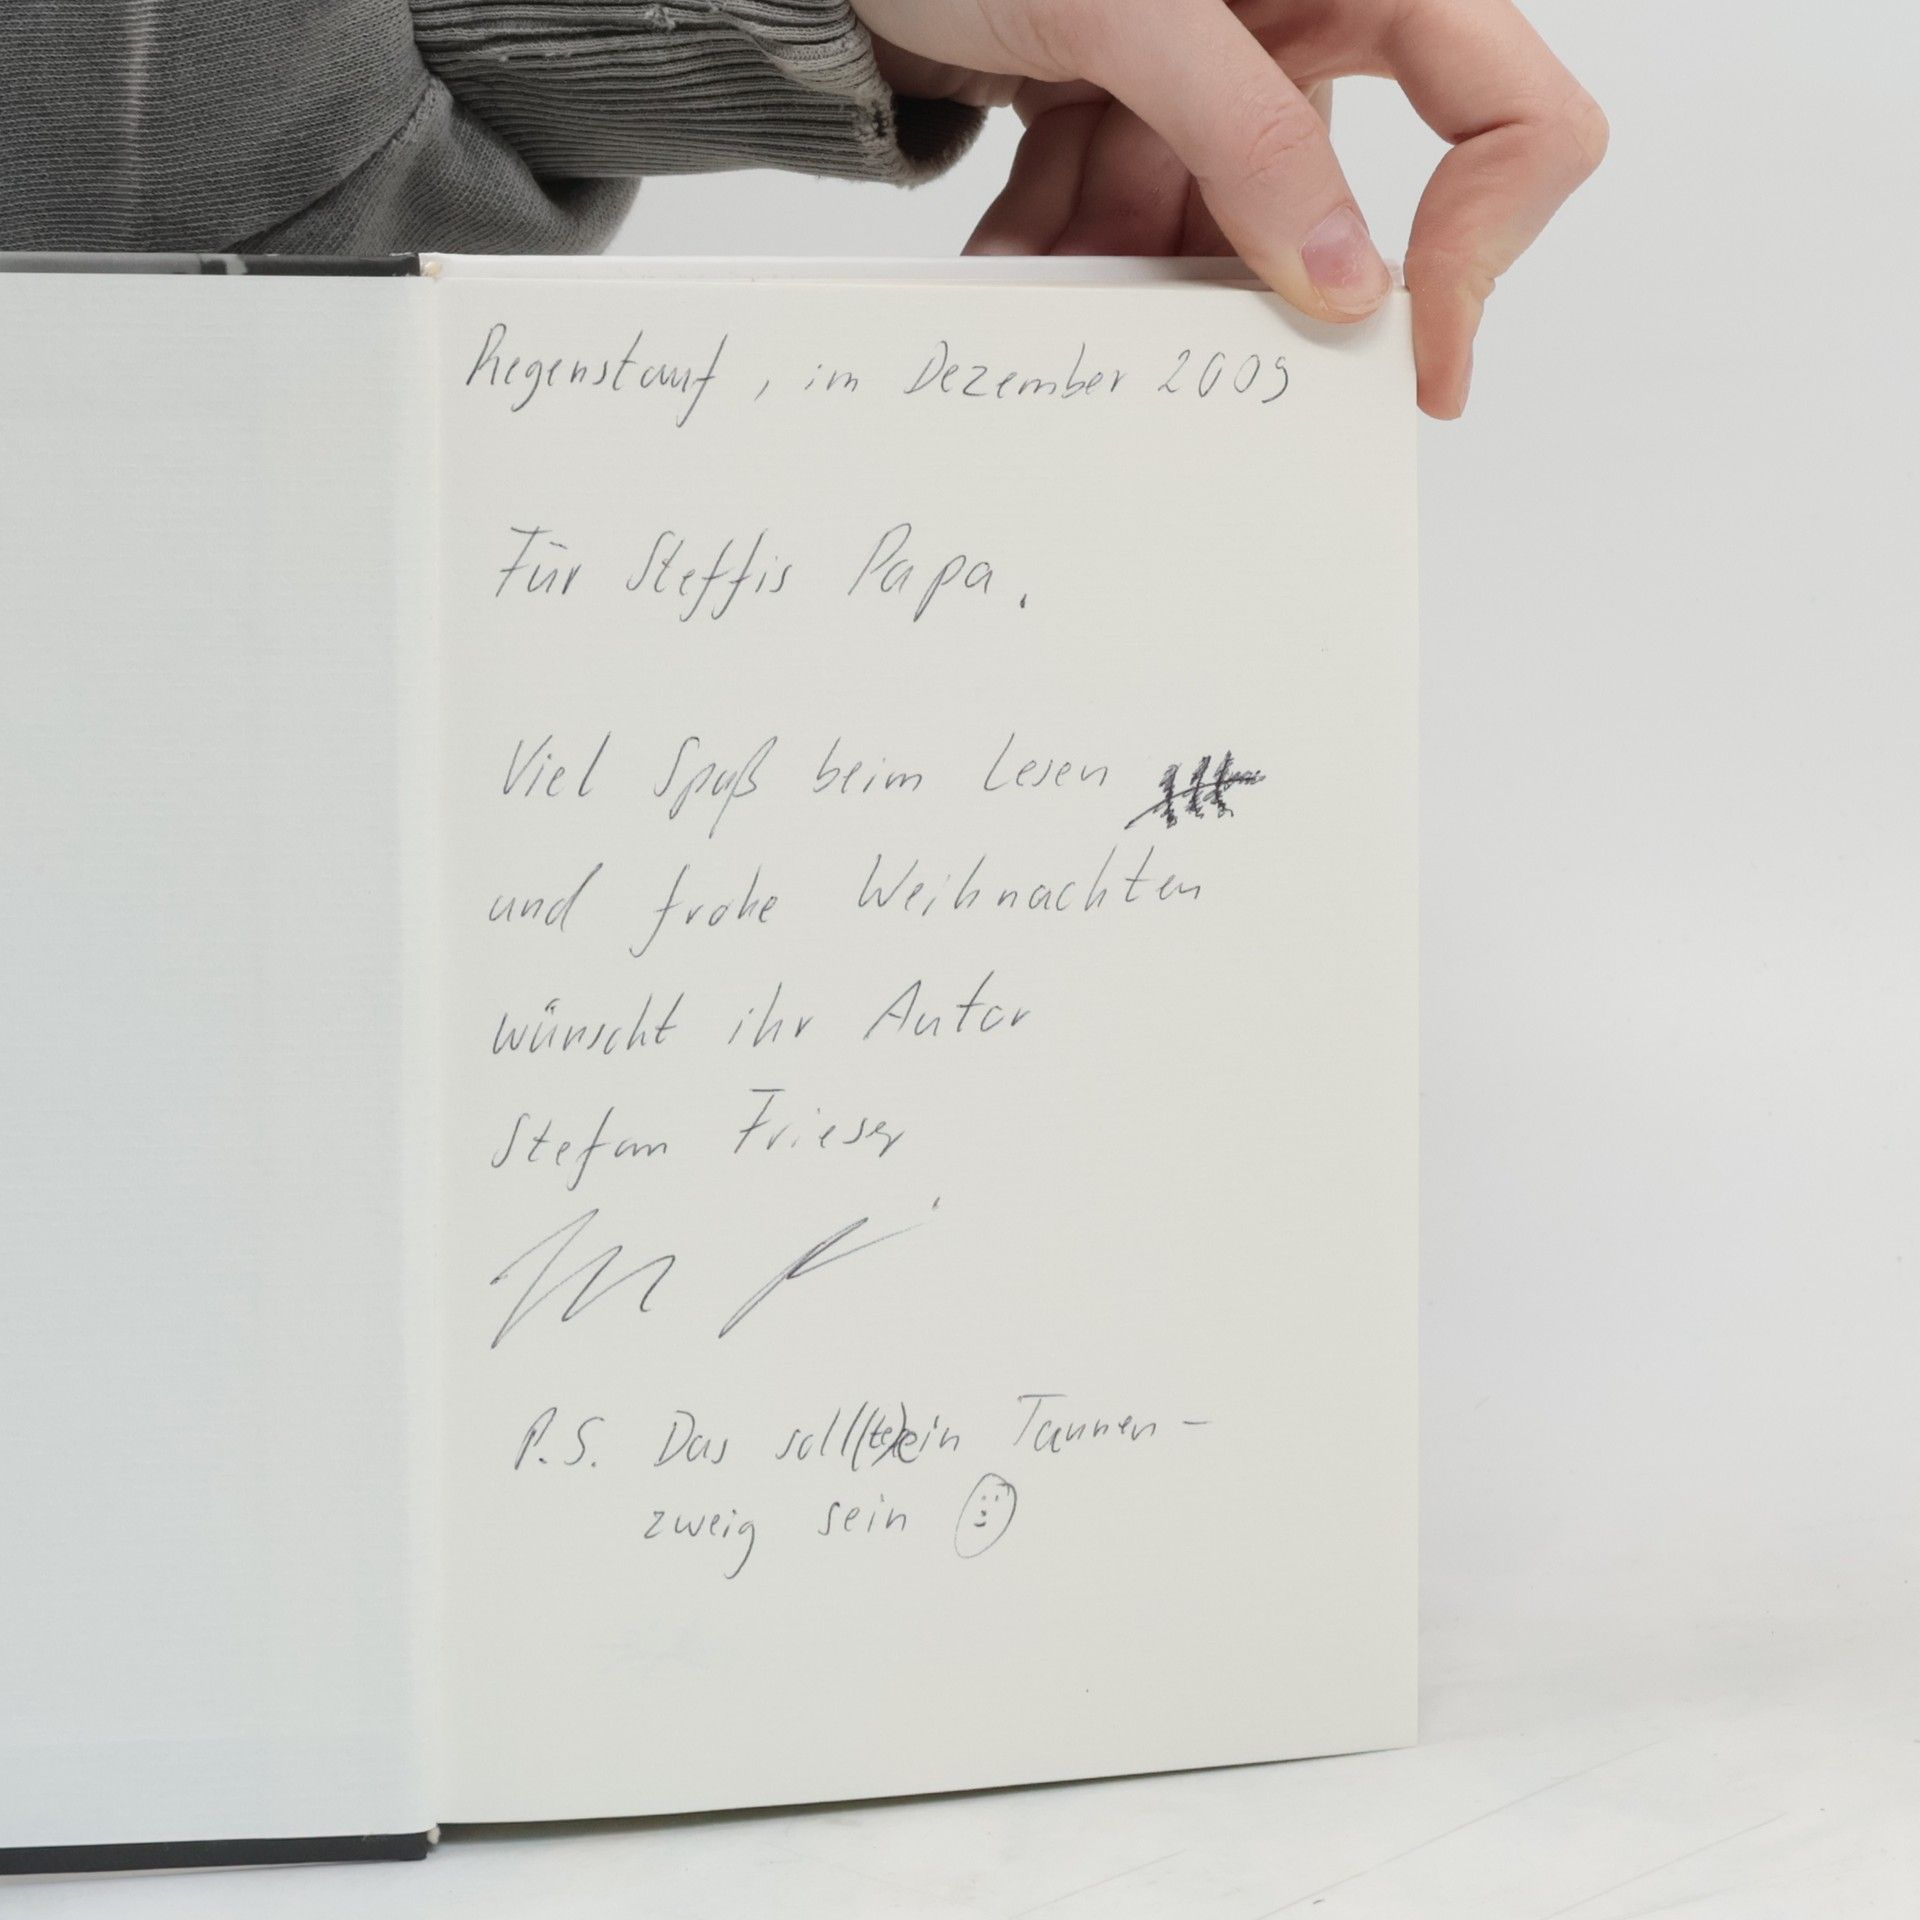 Regenstauf, im Dezember 2009
Für Steffis Papa.
Viel Spaß beim Lesen
und frohe Weihnachten
wünscht ihr Autor
Stefan Frieser
P.S. Das soll(te) ein Tannen-
zweig sein